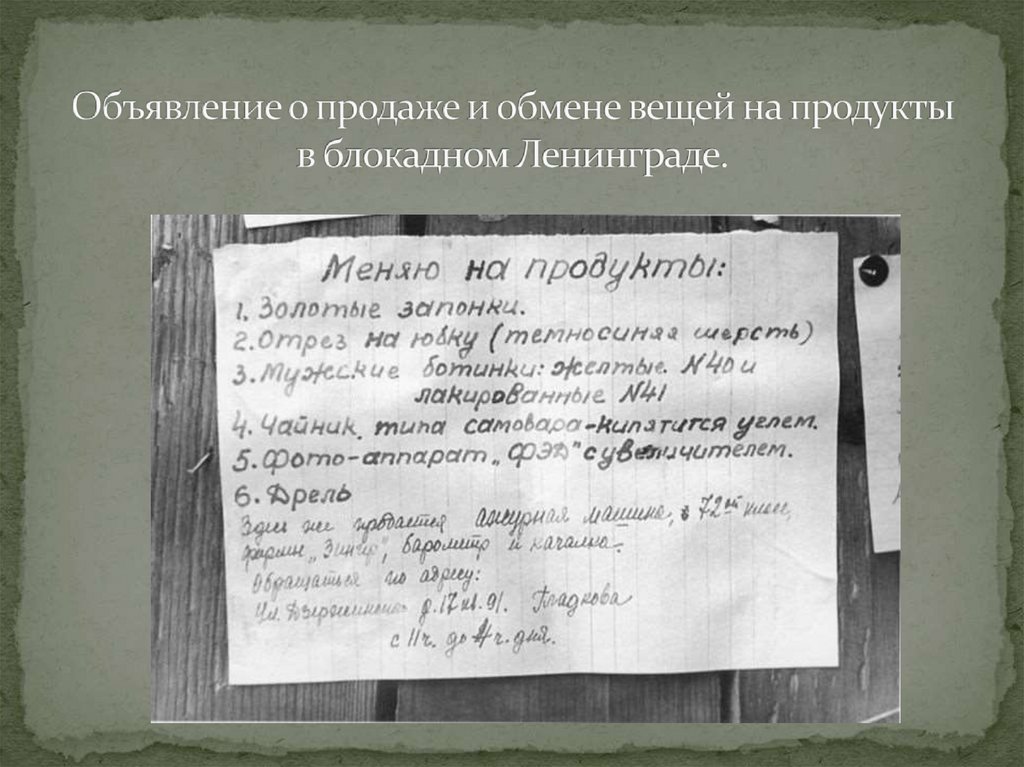 Объявление о продаже и обмене вещей на продукты
в блокадном Ленинграде.
Меняю на продукты:
1. Золотые запонки.
2. Отрез на юбку (темносиняя шерсть)
3. Мужские ботинки: желтые N40 и
лакированные N41
4. Чайник типа самовара-кипятится углем.
5. Фото-аппарат „ФЭД" с увеличителем.
6. Дрель
Здесь же продается ажурная машина, 72ой класс,
фирмы „Зингер", барометр и качалка.
Обращаться по адресу:
Ул. Дзержинского д. 17 кв. 91. Гладкова
с 11ч. до 4ч. дня.